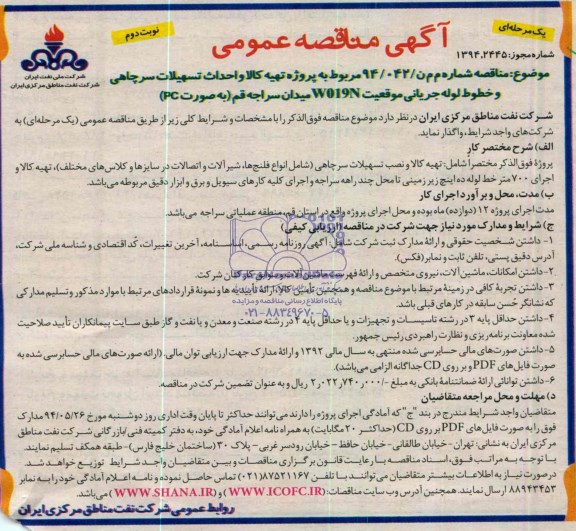 یک مرحله‌ای
آگهی مناقصه عمومی
نوبت دوم
شماره مجوز: ۱۳۹۴.۲۴۴۵
شرکت ملی نفت ایران
شرکت نفت مناطق مرکزی ایران
موضوع: مناقصه شماره م م ن/۹۴/۰۴۲ مربوط به پروژه تهیه کالا و احداث تسهیلات سرچاهی
و خطوط لوله جریانی موقعیت W019N میدان سراجه قم (به صورت PC)
شرکت نفت مناطق مرکزی ایران در نظر دارد موضوع مناقصه فوق‌الذکر را با مشخصات و شرایط کلی زیر از طریق مناقصه عمومی (یک مرحله‌ای) به
شرکت‌های واجد شرایط، واگذار نماید.
الف) شرح مختصر کار
پروژه فوق‌الذکر مختصراً شامل: تهیه کالا و نصب تسهیلات سرچاهی (شامل انواع فلنج‌ها، شیرآلات و اتصالات در سایزها و کلاس‌های مختلف)، تهیه کالا و
اجرای ۷۰۰ متر خط لوله ده اینچ زیرزمینی تا محل چند راهه سراجه و اجرای کلیه کارهای سیویل و برق و ابزار دقیق مربوطه می‌باشد.
ب) مدت، محل و برآورد اجرای کار
مدت اجرای پروژه ۱۲ (دوازده) ماه بوده و محل اجرای پروژه واقع در استان قم، منطقه عملیاتی سراجه می‌باشد.
ج) شرایط و مدارک مورد نیاز جهت شرکت در مناقصه (ارزیابی کیفی)
۱- داشتن شخصیت حقوقی و ارائه مدارک ثبت شرکت شامل: آگهی روزنامه رسمی، اساسنامه، آخرین تغییرات، کد اقتصادی و شناسه ملی شرکت،
آدرس دقیق پستی، تلفن ثابت و نمابر (فکس).
۲- داشتن امکانات، ماشین آلات، نیروی متخصص و ارائه فهرست ماشین آلات و سوابق کارکنان شرکت.
۳- داشتن تجربه کافی در زمینه مرتبط با موضوع مناقصه و همچنین تأمین کالا، ارائه تأییدیه‌ها و نمونه قراردادهای مرتبط با موارد مذکور و تسلیم مدارکی
که نشانگر حسن سابقه در کارهای قبلی باشد.
پایگاه اطلاع رسانی مناقصه و مزایده
۰۲۱-۸۸۳۴۹۶۷۰-۵
۴- داشتن حداقل پایه ۳ در رشته تاسیسات و تجهیزات و یا حداقل پایه ۴ در رشته صنعت و معدن و یا نفت و گاز طبق سایت پیمانکاران تأیید صلاحیت
شده معاونت برنامه‌ریزی و نظارت راهبردی رئیس جمهور.
۵- داشتن صورت‌های مالی حسابرسی شده منتهی به سال مالی ۱۳۹۲ و ارائه مدارک جهت ارزیابی توان مالی. (ارائه صورت‌های مالی حسابرسی شده به
صورت فایل‌های PDF و بر روی CD جداگانه الزامی می‌باشد).
۶- داشتن توانائی ارائه ضمانتنامه بانکی به مبلغ -/۲,۰۲۲,۷۴۰,۰۰۰ ریال و به عنوان تضمین شرکت در مناقصه.
د) مهلت و محل مراجعه متقاضیان
متقاضیان واجد شرایط مندرج در بند "ج" که آمادگی اجرای پروژه را دارند می‌توانند حداکثر تا پایان وقت اداری روز دوشنبه مورخ ۹۴/۰۵/۲۶ مدارک
فوق را به صورت فایل‌های PDF بر روی CD (حداکثر ۲۰ مگابایت) به همراه نامه اعلام آمادگی خود، به دفتر کمیته فنی/بازرگانی شرکت نفت مناطق
مرکزی ایران به نشانی: تهران- خیابان طالقانی- خیابان حافظ- خیابان رودسر غربی- پلاک ۳۰ (ساختمان خلیج فارس)- طبقه همکف تسلیم نمایند.
با توجه به مراتب فوق، اسناد مناقصه با رعایت قانون برگزاری مناقصات و بین متقاضیان واجد شرایط توزیع خواهد شد.
در صورت نیاز به اطلاعات بیشتر متقاضیان می‌توانند با تلفن (۰۲۱)۸۷۵۲۱۱۶۷ تماس حاصل نموده و نامه اعلام آمادگی خود را به نمابر
۸۸۹۴۳۴۵۳ ارسال نمایند. همچنین آدرس وب سایت مناقصات: (WWW.ICOFC.IR) و (WWW.SHANA.IR) می‌باشد.
روابط عمومی شرکت نفت مناطق مرکزی ایران